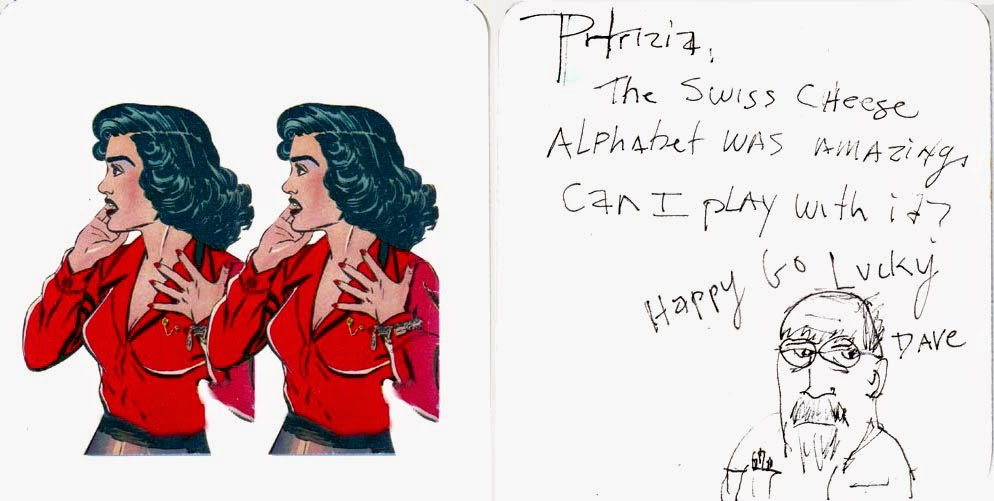 Patrizia,
The Swiss Cheese
Alphabet was amazing.
Can I play with it?
Happy Go Lucky
Dave